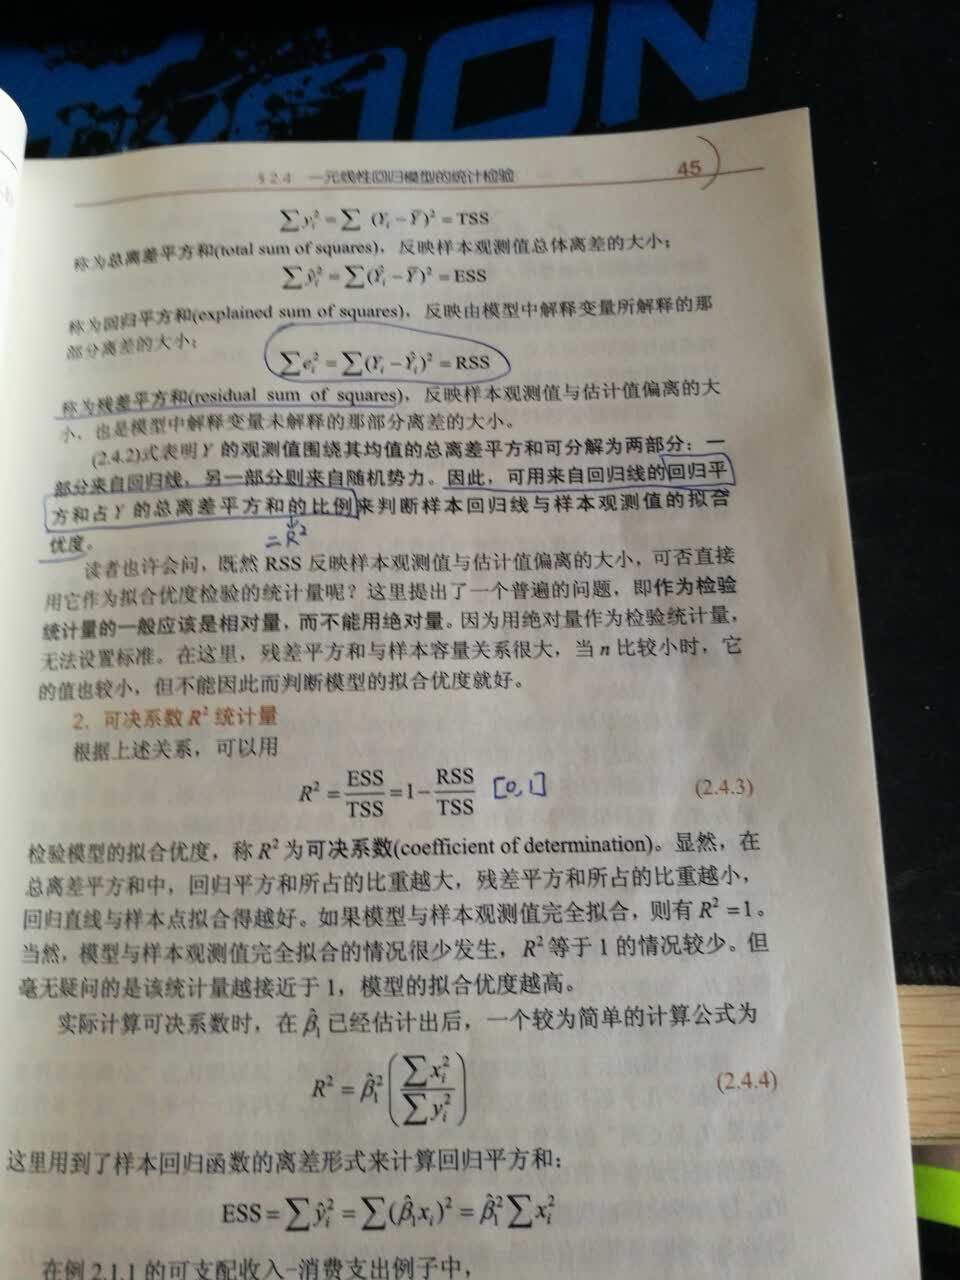 §2.4 一元线性回归模型的统计检验 45
∑y_i² = ∑(Y_i − Ȳ)² = TSS
称为总离差平方和(total sum of squares)，反映样本观测值总体离差的大小；
∑ŷ_i² = ∑(Ŷ_i − Ȳ)² = ESS
称为回归平方和(explained sum of squares)，反映由模型中解释变量所解释的那
部分离差的大小；
∑e_i² = ∑(Y_i − Ŷ_i)² = RSS
称为残差平方和(residual sum of squares)，反映样本观测值与估计值偏离的大
小，也是模型中解释变量未解释的那部分离差的大小。
(2.4.2)式表明 Y 的观测值围绕其均值的总离差平方和可分解为两部分：一
部分来自回归线，另一部分则来自随机势力。因此，可用来自回归线的回归平
方和占 Y 的总离差平方和的比例来判断样本回归线与样本观测值的拟合
优度。
=R²
读者也许会问，既然 RSS 反映样本观测值与估计值偏离的大小，可否直接
用它作为拟合优度检验的统计量呢？这里提出了一个普遍的问题，即作为检验
统计量的一般应该是相对量，而不能用绝对量。因为用绝对量作为检验统计量，
无法设置标准。在这里，残差平方和与样本容量关系很大，当 n 比较小时，它
的值也较小，但不能因此而判断模型的拟合优度就好。
2. 可决系数 R² 统计量
根据上述关系，可以用
R² = ESS/TSS = 1 − RSS/TSS [0,1] (2.4.3)
检验模型的拟合优度，称 R² 为可决系数(coefficient of determination)。显然，在
总离差平方和中，回归平方和所占的比重越大，残差平方和所占的比重越小，
回归直线与样本点拟合得越好。如果模型与样本观测值完全拟合，则有 R² =1。
当然，模型与样本观测值完全拟合的情况很少发生，R² 等于 1 的情况较少。但
毫无疑问的是该统计量越接近于 1，模型的拟合优度越高。
实际计算可决系数时，在 β̂₁ 已经估计出后，一个较为简单的计算公式为
R² = β̂₁² (∑x_i² / ∑y_i²) (2.4.4)
这里用到了样本回归函数的离差形式来计算回归平方和：
ESS = ∑ŷ_i² = ∑(β̂₁x_i)² = β̂₁² ∑x_i²
在例 2.1.1 的可支配收入-消费支出例子中，